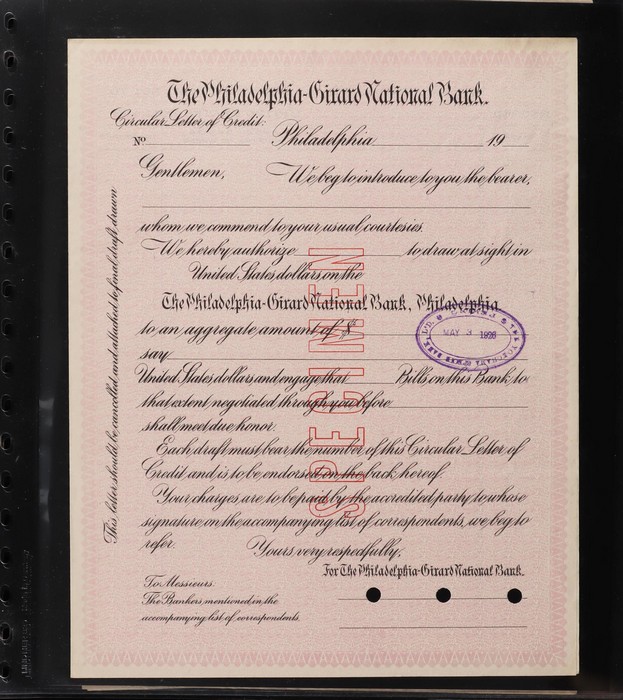 The Philadelphia-Girard National Bank.
Circular Letter of Credit:
No
Philadelphia 19
Gentlemen, We beg to introduce to you the bearer,
whom we commend to your usual courtesies.
We hereby authorize to draw at sight in
United States dollars on the
The Philadelphia-Girard National Bank, Philadelphia
to an aggregate amount of $
say
United States dollars and engage that Bills on this Bank to
that extent negotiated through you before
shall meet due honor.
Each draft must bear the number of this Circular Letter of
Credit and is to be endorsed on the back hereof.
Your charges are to be paid by the accredited party to whose
signature on the accompanying list of correspondents, we beg to
refer. Yours very respectfully,
For The Philadelphia-Girard National Bank.
To Messieurs.
The Bankers, mentioned in the
accompanying list of correspondents.
This letter should be cancelled and attached to final draft drawn
SPECIMEN
MAY 3 1926